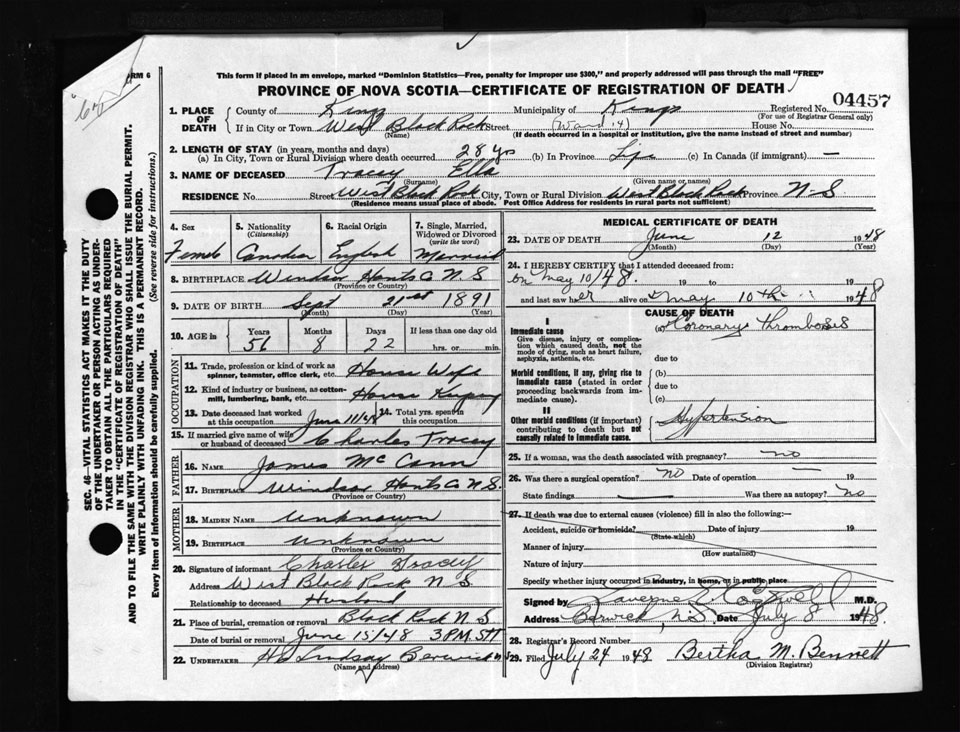 FORM 6
This form if placed in an envelope, marked "Dominion Statistics—Free, penalty for improper use $300," and properly addressed will pass through the mail "FREE"
PROVINCE OF NOVA SCOTIA—CERTIFICATE OF REGISTRATION OF DEATH
Registered No. 04457
(For use of Registrar General only)
1. PLACE OF DEATH County of Kings Municipality of Kings
If in City or Town West Black Rock Street (Ward 14) House No.
(Name) (If death occurred in a hospital or institution, give the name instead of street and number)
2. LENGTH OF STAY (in years, months and days)
(a) In City, Town or Rural Division where death occurred 28 yrs (b) In Province Life (c) In Canada (if immigrant) —
3. NAME OF DECEASED Tracey Ella
(Surname) (Given name or names)
RESIDENCE No. Street West Black Rock City, Town or Rural Division West Black Rock Province N.S.
(Residence means usual place of abode. Post Office Address for residents in rural parts not sufficient)
4. Sex 5. Nationality (Citizenship) 6. Racial Origin 7. Single, Married, Widowed or Divorced (write the word)
Female Canadian English Married
8. BIRTHPLACE Windsor Hants Co N S
(Province or Country)
9. DATE OF BIRTH Sept 21st 1891
(Month) (Day) (Year)
10. AGE in Years Months Days If less than one day old
56 8 22 hrs. or min.
OCCUPATION
11. Trade, profession or kind of work as spinner, teamster, office clerk, etc. House Wife
12. Kind of industry or business, as cotton-mill, lumbering, bank, etc. House Keeping
13. Date deceased last worked at this occupation June 11/48 14. Total yrs. spent in this occupation
15. If married give name of wife or husband of deceased Charles Tracey
FATHER
16. NAME James McCann
17. BIRTHPLACE Windsor Hants Co N.S.
(Province or Country)
MOTHER
18. MAIDEN NAME Unknown
19. BIRTHPLACE Unknown
(Province or Country)
20. Signature of informant Charles Tracey
Address West Black Rock N S
Relationship to deceased Husband
21. Place of burial, cremation or removal Black Rock N.S.
Date of burial or removal June 15/48 3 P.M. ST
22. UNDERTAKER Lindsay Berwick N S
(Name and address)
MEDICAL CERTIFICATE OF DEATH
23. DATE OF DEATH June 12 1948
(Month) (Day)
24. I HEREBY CERTIFY that I attended deceased from:
on May 10/48. 19 to 19
and last saw her alive on May 10th 1948
CAUSE OF DEATH
I
Immediate cause
Give disease, injury or complication which caused death, not the mode of dying, such as heart failure, asphyxia, asthenia, etc.
(a) Coronary Thrombosis
due to
Morbid conditions, if any, giving rise to immediate cause (stated in order proceeding backwards from immediate cause).
(b)
due to
(c)
II
Other morbid conditions (if important) contributing to death but not causally related to immediate cause.
Hypertension
25. If a woman, was the death associated with pregnancy? no
26. Was there a surgical operation? no Date of operation — 19
State findings — Was there an autopsy? no
27. If death was due to external causes (violence) fill in also the following:
Accident, suicide or homicide? Date of injury 19
(State which)
Manner of injury
(How sustained)
Nature of injury
Specify whether injury occurred in industry, in home, or in public place
Signed by M.D.
Address Berwick, N.S. Date July 8 1948.
28. Registrar's Record Number
29. Filed July 24 1948 Bertha M. Bennett
(Division Registrar)
SEC. 46—VITAL STATISTICS ACT MAKES IT THE DUTY
OF THE UNDERTAKER OR PERSON ACTING AS UNDER-
TAKER TO OBTAIN ALL THE PARTICULARS REQUIRED
IN THE "CERTIFICATE OF REGISTRATION OF DEATH"
AND TO FILE THE SAME WITH THE DIVISION REGISTRAR WHO SHALL ISSUE THE BURIAL PERMIT.
WRITE PLAINLY WITH UNFADING INK. THIS IS A PERMANENT RECORD.
Every item of information should be carefully supplied. (See reverse side for instructions.)